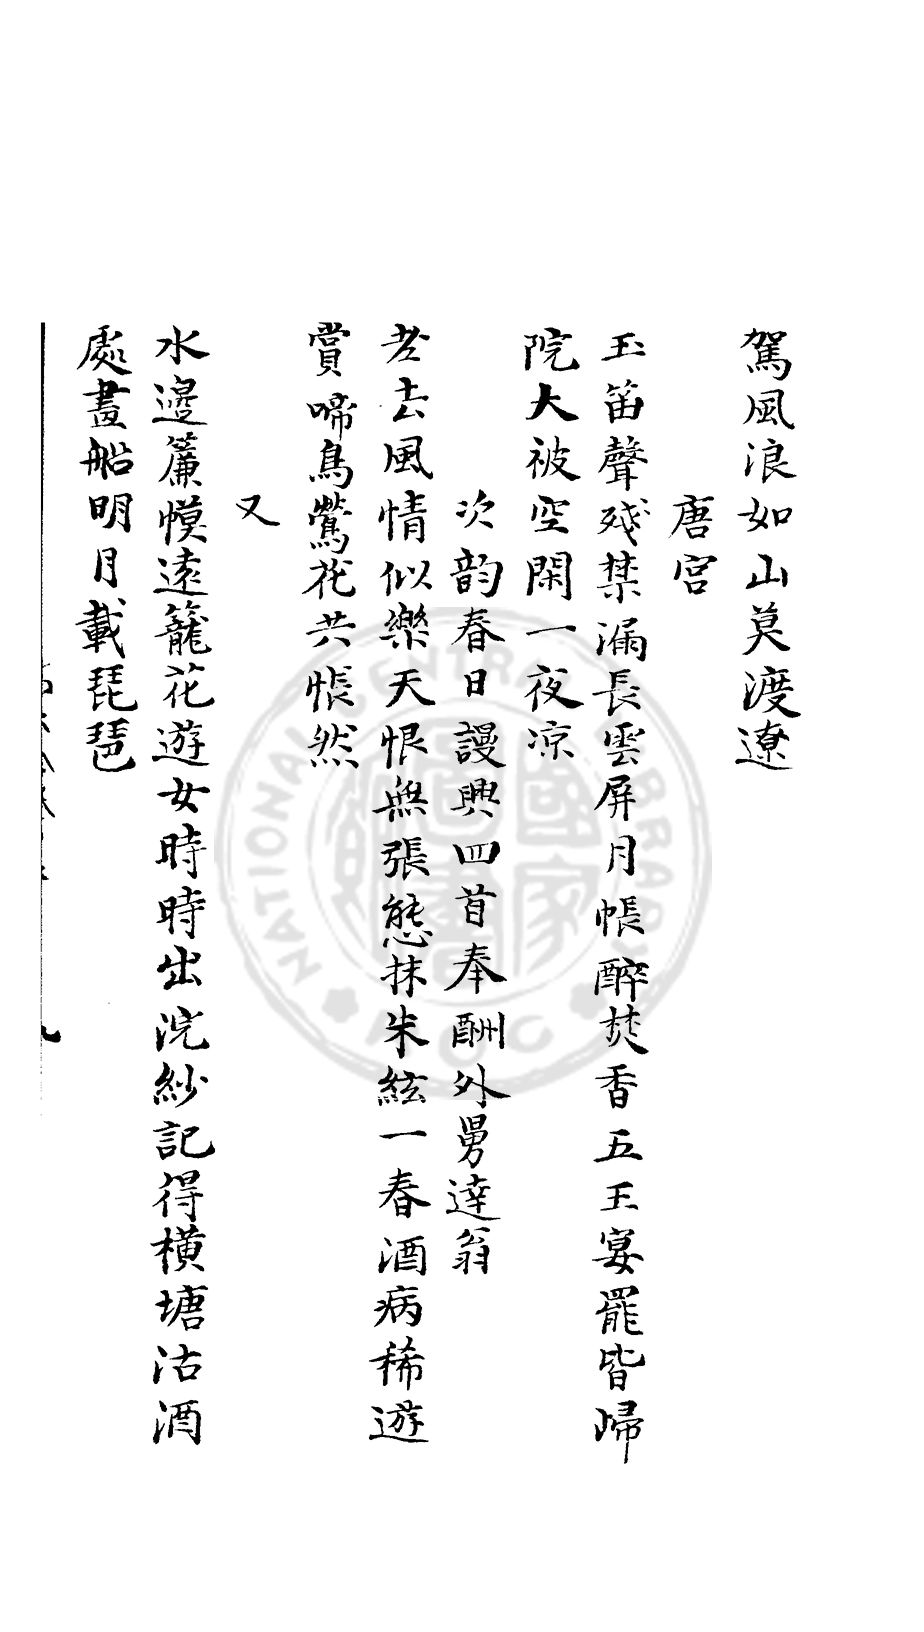 駕風浪如山莫渡遼
唐宮
玉笛聲殘禁漏長雲屏月帳醉焚香五王宴罷皆歸
院大被空閑一夜凉
次韵春日謾興四首奉酬外舅達翁
老去風情似樂天恨無張態抹朱絃一春酒病稀遊
賞啼鳥鶯花共悵然
又
水邊簾幙遠籠花遊女時時出浣紗記得橫塘沽酒
處畫船明月載琵琶
九
NATIONAL CENTRAL LIBRARY
ROC
國家圖書館